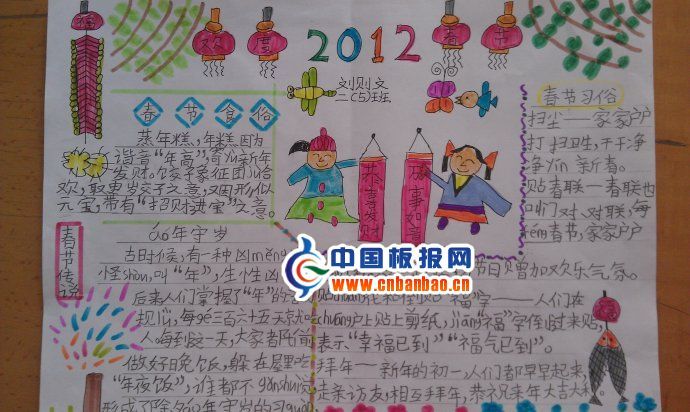 福 欢 度 2012 春 节
刘则文
二(5)班
春节食俗
蒸年糕、年糕因为
谐音"年高",
发财。饺子象征团
欢,取更岁交子之意,又因形似
元宝,带有"招财进宝"之意。
恭喜发财
万事如意
春节习俗
扫尘——家家户户
打扫卫生,干干净
净yín新春。
贴春联——春联也
叫门对、对联,每
féng春节,家家户户
节日增加欢乐气氛。
福"字——人们在
chuāng户上贴上剪纸,jiāng"福"字倒过来贴,
表示"幸福已到""福气已到"。
拜年——新年的初一,人们都早早起来,
走亲访友,相互拜年,恭祝来年大吉大利
春节传说
年守岁
古时候,有一种凶měng
怪shòu,叫"年",生性凶
后来人们掌握了"年"的
规律,每gé三百六十五天
人每到这一天,大家者
做好晚饭,躲在屋里吃
"年夜饭",谁都不gǎnshuì
形成了除夕年守岁的习
中国板报网
www.cnbanbao.cn